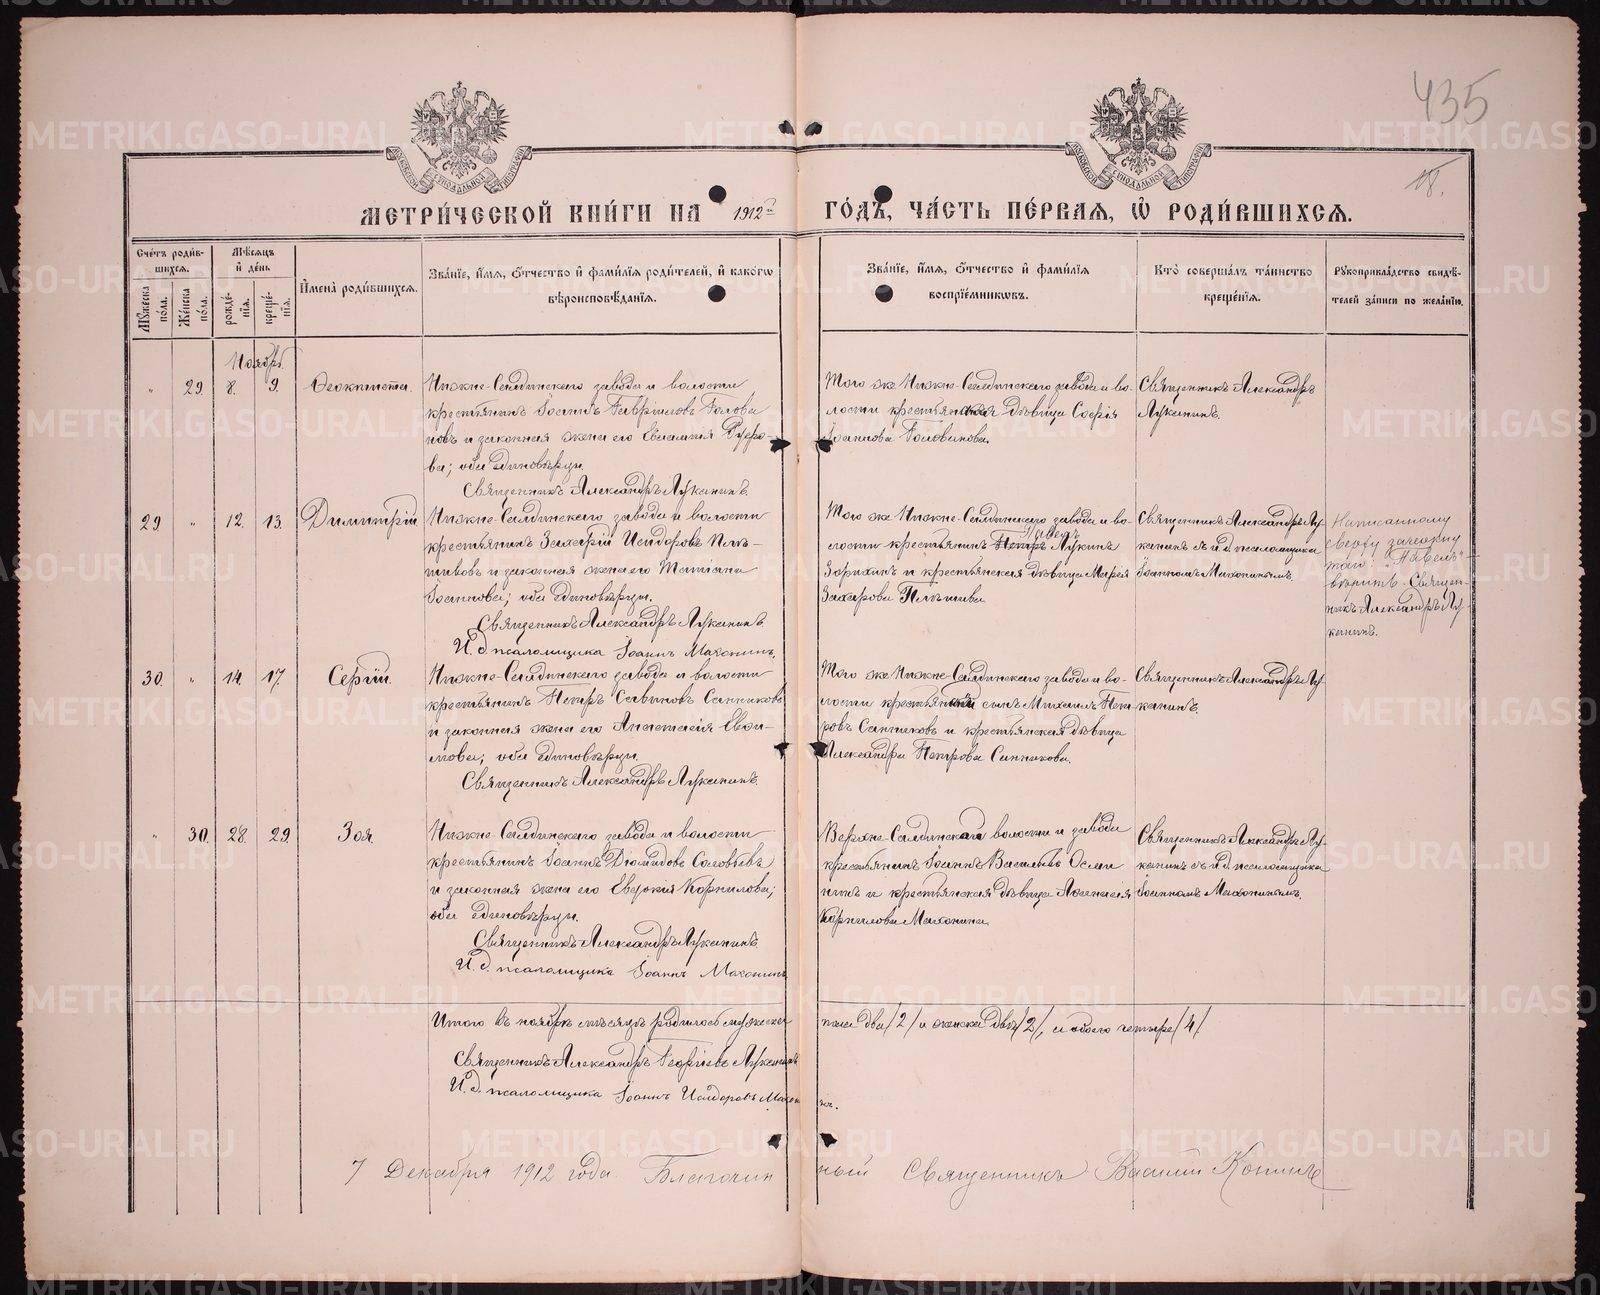 435
18.
МЕТРИЧЕСКОЙ КНИГИ НА 1912й ГОДЪ, ЧАСТЬ ПЕРВАЯ, Ѡ РОДИВШИХСЯ.
Счетъ родившихся.
Мужеска пола.
Женска пола.
Мѣсяцъ и день
рожденія.
крещенія.
Имена родившихся.
Званіе, имя, отчество и фамилія родителей, и какогѡ вѣроисповѣданія.
Званіе, имя, отчество и фамилія воспріемниковъ.
Кто совершалъ таинство крещенія.
Рукоприкладство свидѣтелей записи по желанію.
Ноябрь.
" 29. 8. 9. Ѳеоктиста.
Нижне-Салдинскаго завода и волости
крестьянинъ Іоаннъ Гавріиловъ Голови
новъ и законная жена его Евлампія
ва; оба единовѣрцы.
Священникъ Александръ Луканинъ.
Того же Нижне-Салдинскаго завода и во-
лости крестьянская дѣвица Софія
Іоаннова Головинова.
Священникъ Александръ
Луканинъ.
29. " 12. 13. Димитрій
Нижне-Салдинскаго завода и волости
крестьянинъ Захарій Исидоровъ
и законная жена его Татіана
Іоаннова; оба единовѣрцы.
Священникъ Александръ Луканинъ.
И. д. псаломщика Іоаннъ Махонинъ.
Того же Нижне-Салдинскаго завода и во-
Павелъ
лости крестьянинъ Петръ Лукинъ
Зорихинъ и крестьянская дѣвица Марія
Захарова
Священникъ Александръ Лу-
канинъ съ и. д. псаломщика
Іоанномъ Махонинымъ.
Написанному
сверху зачеркну
таго: "Павелъ"
вѣрить. Священ-
никъ Александръ Лу-
канинъ.
30. " 14. 17. Сергій.
Нижне-Салдинскаго завода и волости
крестьянинъ Петръ Савиновъ Санниковъ
и законная жена его Анастасія Евѳи-
мова; оба единовѣрцы.
Священникъ Александръ Луканинъ.
Того же Нижне-Салдинскаго завода и во-
лости крестьянскій сынъ Михаилъ Пет-
ровъ Санниковъ и крестьянская дѣвица
Александра Петрова Санникова.
Священникъ Александръ Лу-
канинъ.
" 30. 28. 29. Зоя.
Нижне-Салдинскаго завода и волости
крестьянинъ Іоаннъ Діомидовъ Соловьевъ
и законная жена его Евдокія Корнилова;
оба единовѣрцы.
Священникъ Александръ Луканинъ.
И. д. псаломщика Іоаннъ Махонинъ
Верхне-Салдинской волости и завода
крестьянинъ Іоаннъ Васильевъ Ослам
нинъ и крестьянская дѣвица
Корнилова Махонина.
Священникъ Александръ Лу-
канинъ съ и. д. псаломщика
Іоанномъ Махонинымъ.
Итого въ ноябрѣ мѣсяцѣ родилось мужеска пола два /2/ и женска двѣ /2/, и обоего четыре /4/
Священникъ Александръ Георгіевъ Луканинъ
И. д. псаломщика Іоаннъ Исидоровъ Махонинъ.
7 Декабря 1912 года. Благочинный Священникъ Василій
METRIKI.GASO-URAL.RU